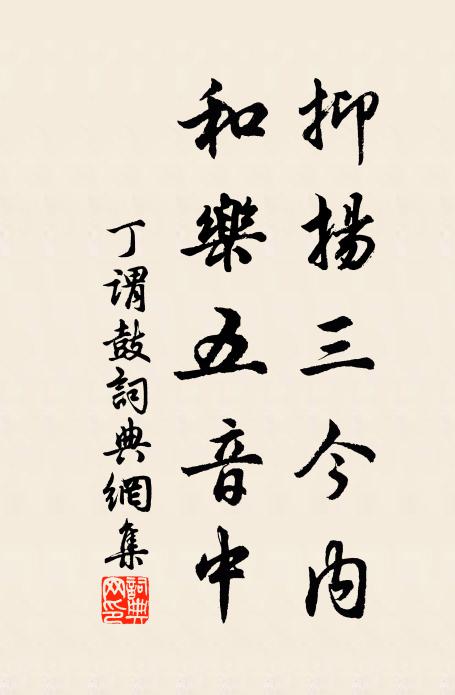 抑揚三今内
和樂五音中
丁謂鼓詞典網集
詞典网印